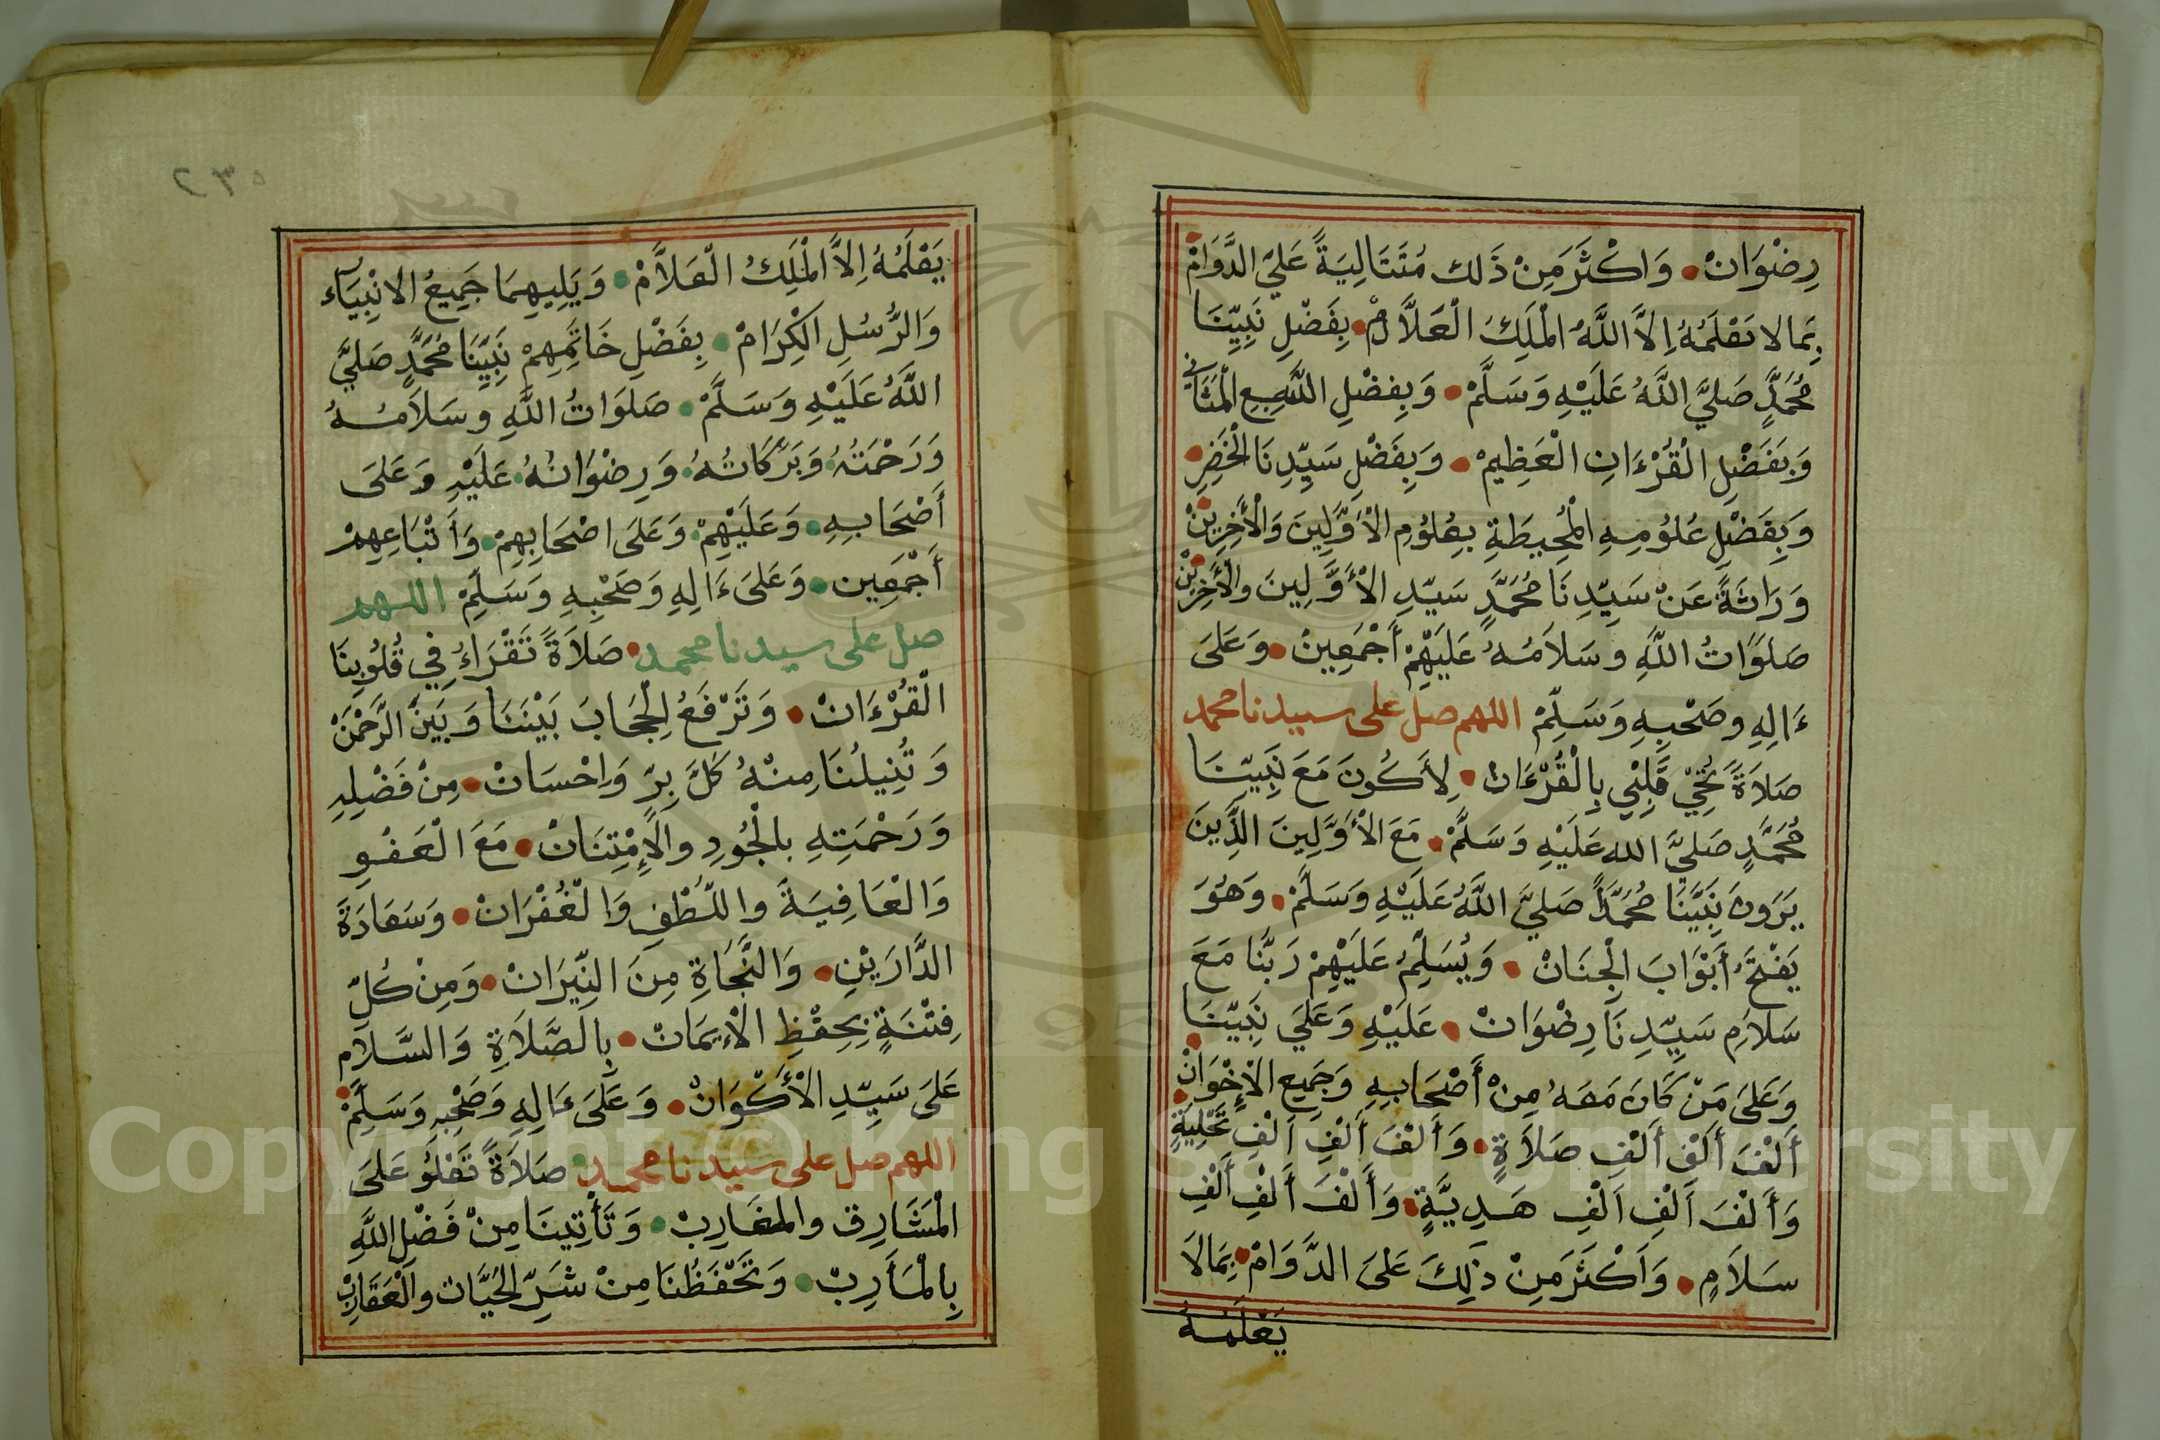 رِضْوَانْ • وَاكْثَرَ مِنْ ذَلك مُتَتَالِيَةً عَلَي الدَّوَامْ
بِمَا لا يَعْلَمُهُ اِلاَّ اللَّهُ الْمَلِكُ الْعَلاَّمْ • بِفَضْلِ نَبِيِّنَا
مُحَمَّدٍ صَلَيَّ اللَّهُ عَلَيْهِ وَسَلَّمْ • وَبِفضْلِ السَّبِعِ الْمَثَانِي
وَبِفَضْلِ الْقُرْءَانِ الْعَظِيمْ • وَبِفَضْلِ سَيِّدِنَا الْخَضِرِ •
وَبِفَضْلِ عُلُومِهِ الْمُحِيطَةِ بِعُلُومِ الْاَوَّلِينَ وَالْأَخِرِينْ •
وَرَاثَةً عَنْ سَيِّدِنَا مُحَمَّدٍ سَيِّدِ الْأَوَّلِينَ والْأَخِرِيْنْ •
صَلَوَاتُ اللَّهِ وسَلاَمُهُ عَلَيْهِمْ أَجْمَعِينْ • وَعَلَىَ
ءَالِهِ وصَحْبِهِ وَسَلِّمْ اللهم صل على سيدنا محمد
صَلاَةً تُحْيِّ قَلْبِي بِالْقُرْءَانْ • لِأَكُونَ مَعَ نَبِيِّنَا
مُحَمَّدٍ صَلَيَّ الله عَلَيْهِ وَسَلَّمْ • مَعَ الْأَوَّلِينَ الَّذِينَ
يَرَوْنَ نَبِيَّنَا مُحَمَّدًا صَلَيَّ اللَّهُ عَلَيْهِ وَسَلَّمْ • وَهُوَ
يَفْتَحُ أَبْوَابَ الْجِنَانْ • وَيُسَلِّمُ عَلَيْهِمْ رَبُّنَا مَعَ
سَلاَمِ سَيِّدِنَا رِضْوَانْ • عَلَيْهِ وَعَلَي نَبِيِّنَا •
وَعَلَىَ مَنْ كَانَ مَعَهُ مِنْ أَصْحَابِهِ وَجَمِيعِ الْإِخْوَانْ •
أَلْفَ أَلْفِ أَلْفِ صَلاَةٍ • وَأَلْفَ أَلْفِ اَلْفِ تَحْلِيَةٍ •
وَأَلْفَ اَلْفِ اَلْفِ هَدِيَّةٍ • وَأَلْفَ اَلْفِ أَلْفِ
سَلاَمٍ • وَاَكْثَرَ مِنْ ذَلِكَ عَلَىَ الدَّوَامْ • بِمَالاَ
يَعْلَمُهُ
٢٣٥
يَعْلَمُهُ اِلاَّ الْمَلِكُ الْعَلاَّمْ • وَيَلِيهِمَا جَمِيعُ الانْبِيَاءِ
وَالرُّسُلِ الكِرَامْ • بِفَضْلِ خَاتِمِهِمْ نَبِيِّنَا مُحَمَّدٍ صَلَيَّ
اللَّهُ عَلَيْهِ وَسَلَّمْ • صَلَوَاتُ اللَّهِ وسَلاَمُهُ
وَرَحْمَتُهُ • وَبَرَكَاتُهُ • وَرِضْوَانُهُ • عَلَيْهِ وَعَلَىَ
أَصْحَابِهِ • وَعَلَيْهِمْ • وَعَلَى اصْحَابِهِمْ • وَأَتْبَاعِهِمْ
أَجْمَعِين • وَعَلَىَ ءَالِهِ وَصَحْبِهِ وَسَلِّمْ اللهم
صل على سيدنا محمد • صَلاَةً تَقْرَاءُ فِي قُلُوبِنَا
الْقُرْءَانْ • وَتَرْفَعُ الْحِجَابَ بَيْنَنَا وَبَيْنَ الرَّحْمَنْ
وَتُنِيلُنَا مِنْهُ كُلَّ بِرٍّ وَاِحْسَانْ • مِنْ فَضْلِهِ
وَرَحْمَتِهِ بالْجُودِ والْإِمْتِنَانْ • مَعَ الْعَفْوِ
وَالْعَافِيَةَ واللُّطْفِ وَالْغُفْرَانْ • وَسَعَادَةَ
الدَّارَيْنِ • وَالنَّجَاةِ مِنَ النِّيرَانْ • وَمِنْ كُلِّ
فِتْنَةٍ بِحِفْظِ الْأيمَانْ • بِالصَّلاَةِ وَالسَّلاَمِ
عَلَىَ سَيِّدِ الْأَكْوَانْ • وَعَلَىَ ءَالِهِ وَصَحْبِهِ وَسَلِّمْ •
اللهم صل على سيدنا محمد • صَلاَةً تَعْلُو عَلَىَ
الْمَشَارِق والمغَارِبْ • وَتَأْتِينَا مِنْ فَضْلِ اللَّهِ
بِالْمَأَرِبْ • وَتَحْفَظُنَا مِنْ شَرِّ الْحَيَّات والْعَقَارِبْ
Copyright © King Saud University